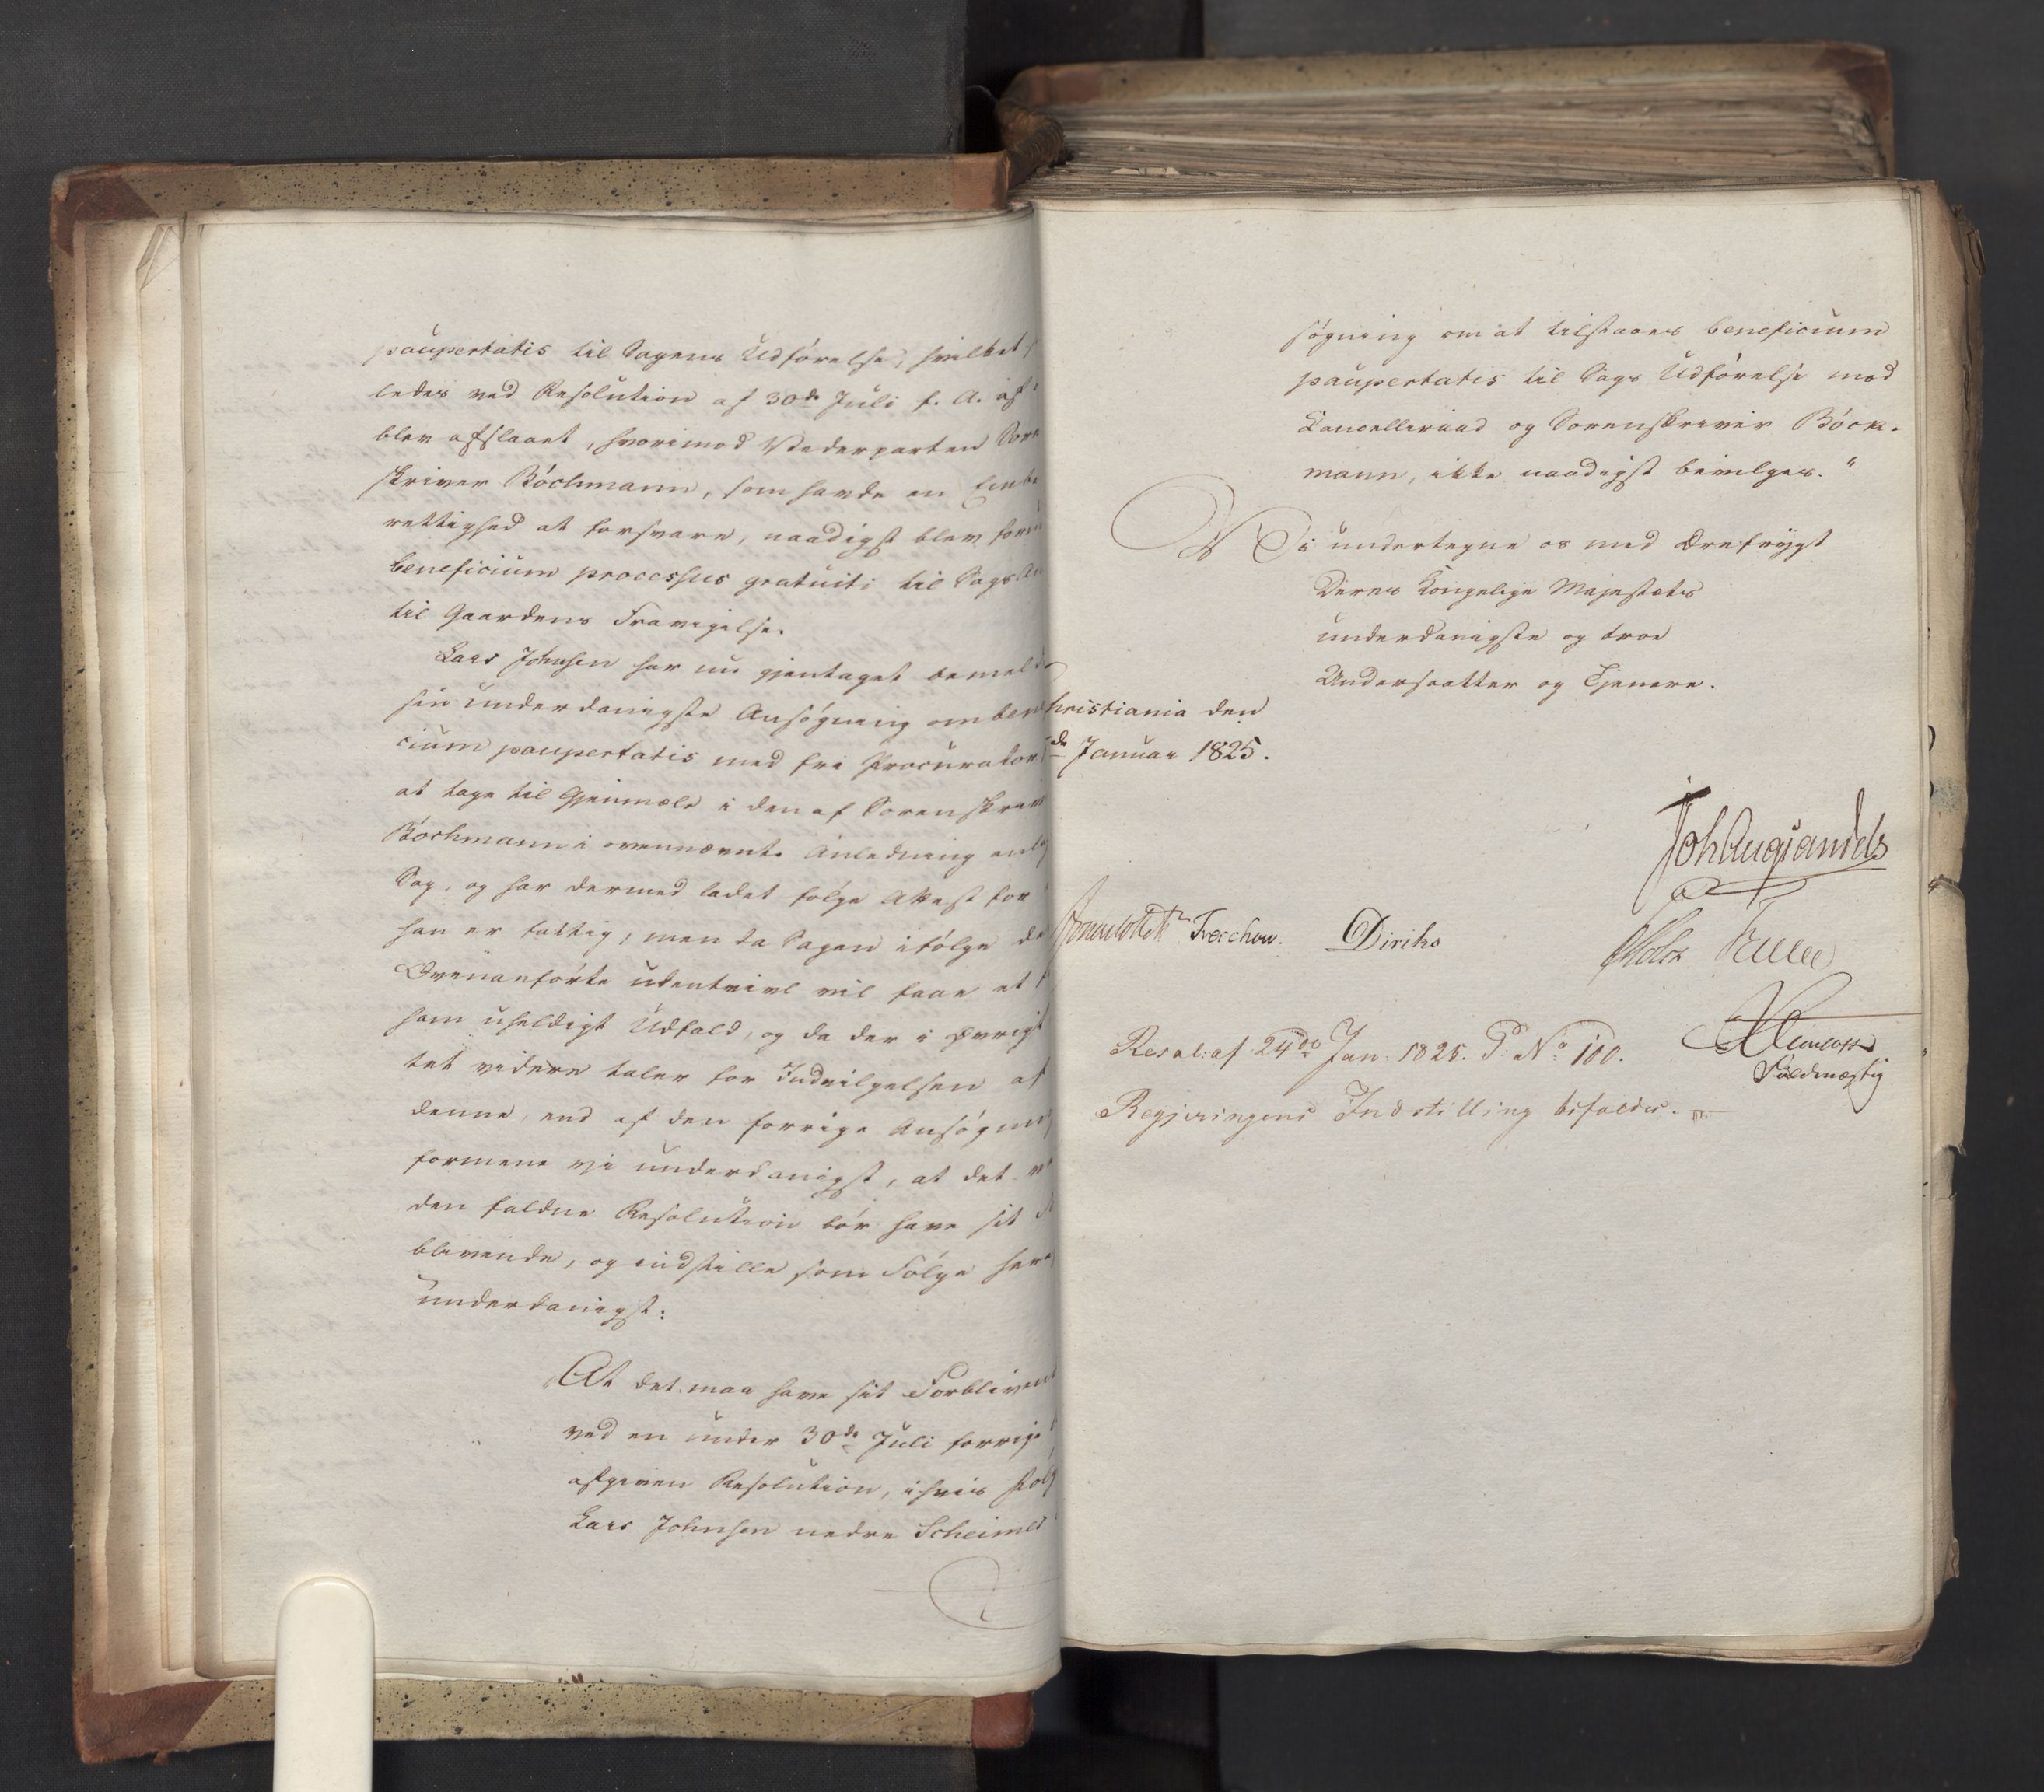 paupertatis til Sagens Udførelse, hvilket
ledes ved Resolution af 30de Juli f. A.
blev afslaaet, hvorimod Vederparten Soren
skriver Böchmann, som havde en Embe
rettighed at forsvare, naadigst blev
beneficium processus gratuiti til Sags
til Gaardens Fravigelse.
Lars Johnsen har nu gjentaget bemel
sin underdanigste Ansøgning om bene
cium paupertatis med fri Procurator
at tage til Gjenmæle i den af Sorenskriv
Böchmann i ovennævnte Anledning anl
Sag, og har dermed ladet følge Attest for
han er fattig, men da Sagen ifølge de
Ovenanførte udentvivl vil faae et
ham uheldigt Udfald, og da der i øvrigt
tet videre taler for Indvilgelsen af
denne, end af den forrige Ansøgning
formene vi underdanigst, at det
den faldne Resolution bør have sit
blivende, og indstille som Følge her
underdanigst:
At det maa have sit Forblivend
ved en under 30de Juli forrige
afgiven Resolution, ihvis Følg
Lars Johnsen nedre Scheimes
søgning om at tilstaaes beneficium
paupertatis til Sags Udførelse mod
Cancelliraad og Sorenskriver Böck-
mann, ikke naadigst bevilges."
Vi undertegne os med Ærefrygt
Deres Kongelige Majestæts
underdanigste og troe
Undersaatter og Tjenere.
hristiania den
de Januar 1825.
Joh Aug Sandels
Treschow. Diriks
Resol: af 24de Jan: 1825. P: No 100.
Fuldmægtig
Regjeringens Indstilling bifaldes.